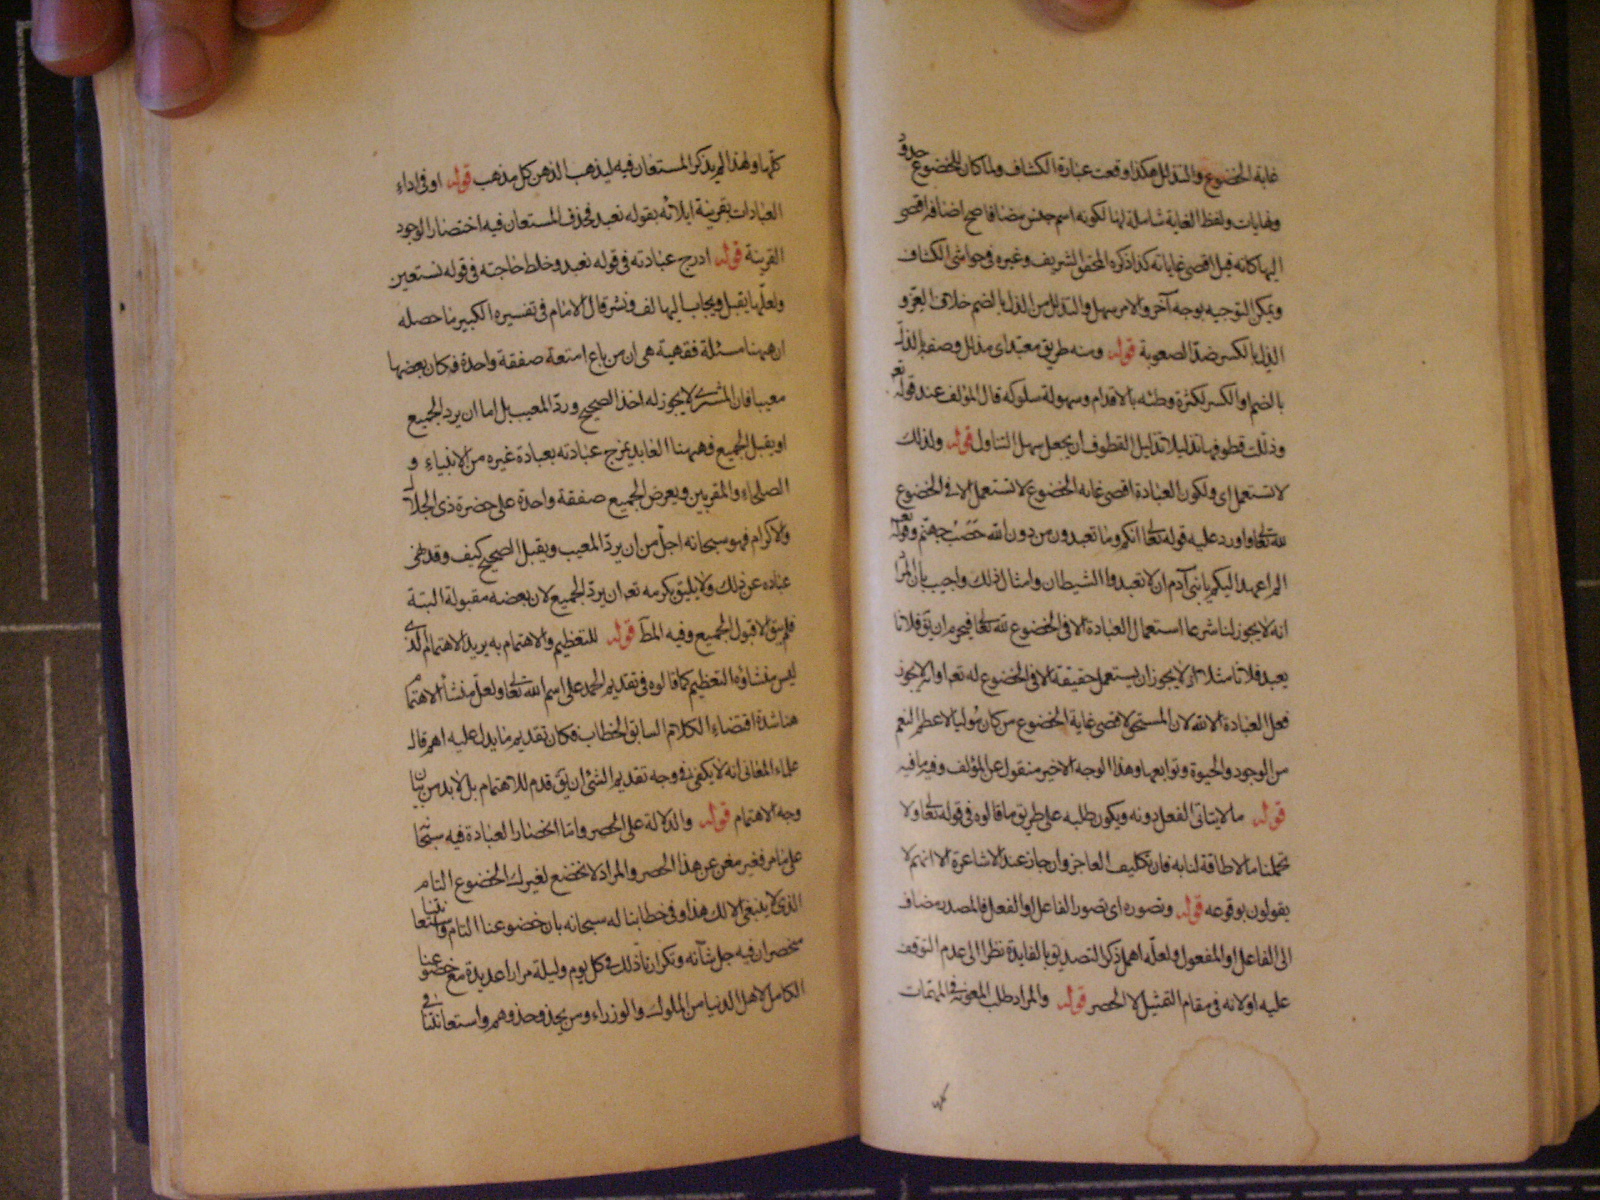 غاية الخضوع والتذلل هكذا وقعت عبارة الكشاف ولما كان للخضوع حدود
ونهايات ولفظ الغاية شاملة لها لكونه اسم جنس مضافا صح اضافة اقصى
اليها كانه قيل اقصى غاياته كذا ذكره المحقق الشريف وغيره في حواشي الكشاف
ويمكن التوجيه بوجه آخر والامر سهل والتذلل من الذل بالضم خلاف العز و
الذل بالكسر ضد الصعوبة قوله ومنه طريق معبد اى مذلل وصف بالذل
بالضم او الكسر لكثرة وطئه بالاقدام وسهولة سلوكه قال المؤلف عند قوله تع
وذللت قطوفها تذليلا تذليل القطوف ان يجعل سهل التناول قوله ولذلك
لا تستعمل اى ولكون العبادة اقصى غاية الخضوع لا تستعمل الا في الخضوع
لله تعالى واورد عليه قوله تعالى انكم وما تعبدون من دون الله حصب جهنم وقوله تع
الم اعهد اليكم يا بنى آدم ان لا تعبدوا الشيطان وامثال ذلك واجيب بان المراد
انه لا يجوز لنا شرعا استعمال العبادة الا في الخضوع لله تعالى فيحرم ان يق فلانا
يعبد فلانا مثلا او لا يجوز ان يستعمل حقيقة الا في الخضوع له تع او لا يجوز
فعل العبادة الا لله لان المستحق لاقصى غاية الخضوع من كان موليا لاعظم النعم
من الوجود والحيوة وتوابعها وهذا الوجه الاخير منقول عن المؤلف وفيه ما فيه
قوله ما لا يتاتى الفعل دونه ويكون طلبه على طريق ما قالوه في قوله تعالى ولا
تحملنا ما لا طاقة لنا به فان تكليف العاجز وان جاز عند الاشاعرة الا انهم لا
يقولون بوقوعه قوله وتصوره اى تصور الفاعل او الفعل فالمصدر مضاف
الى الفاعل او المفعول ولعله اهمل ذكر التصديق بالفايدة نظرا الى عدم التوقف
عليه او لانه في مقام التمثيل لا الحصر قوله والمراد طلب المعونة في المهمات
كلها ولهذا لم يذكر المستعان فيه ليذهب الذهن كل مذهب قوله او في اداء
العبادات بقرينة ايلائه بقوله نعبد فحذف المستعان فيه اختصارا لوجود
القرينة قوله ادرج عبادته في قوله نعبد وخلط حاجته في قوله نستعين
ولعلها يقبل ويجاب اليها لف ونشر قال الامام في تفسيره الكبير ما حصله
ان ههنا مسئلة فقهية هى ان من باع امتعة صفقة واحدة فكان بعضها
معيبا فان المشترى لا يجوز له اخذ الصحيح ورد المعيب بل اما ان يرد الجميع
او يقبل الجميع فههنا العابد يمزج عبادته بعبادة غيره من الانبياء و
الصلحاء والمقربين ويعرض الجميع صفقة واحدة على حضرة ذى الجلال
والاكرام فهو سبحانه اجل من ان يرد المعيب ويقبل الصحيح كيف وقد نهى
عباده عن ذلك ولا يليق بكرمه تع ان يرد الجميع لان بعضه مقبولة البتة
فلم يبق الا قبول الجميع وفيه المط قوله للتعظيم والاهتمام به يريد الاهتمام الذى
ليس منشاؤه التعظيم كما قالوه في تقديم الحمد على اسم الله تعالى ولعل منشأ الاهتمام
هنا شدة اقتضاء الكلام السابق الخطاب فكان تقديم ما يدل عليه اهم قال
علماء المعانى انه لا يكفى في وجه تقديم الشئ ان يق قدم للاهتمام بل لا بد من بيان
وجه الاهتمام قوله والدلالة على الحصر واما انحصار العبادة فيه سبحانه
على ما مر فغير مغن عن هذا الحصر والمراد لا نخضع لغيرك الخضوع التام
الذى لا ينبغى الا لك هذا وفي خطابنا له سبحانه بان خضوعنا التام واستعانتنا
منحصران فيه جل شأنه وتكرارنا ذلك في كل يوم وليلة مرارا عديدة مع خضوعنا
الكامل لاهل الدنيا من الملوك والوزراء ومن يحذو حذوهم واستعانتنا في
كلها